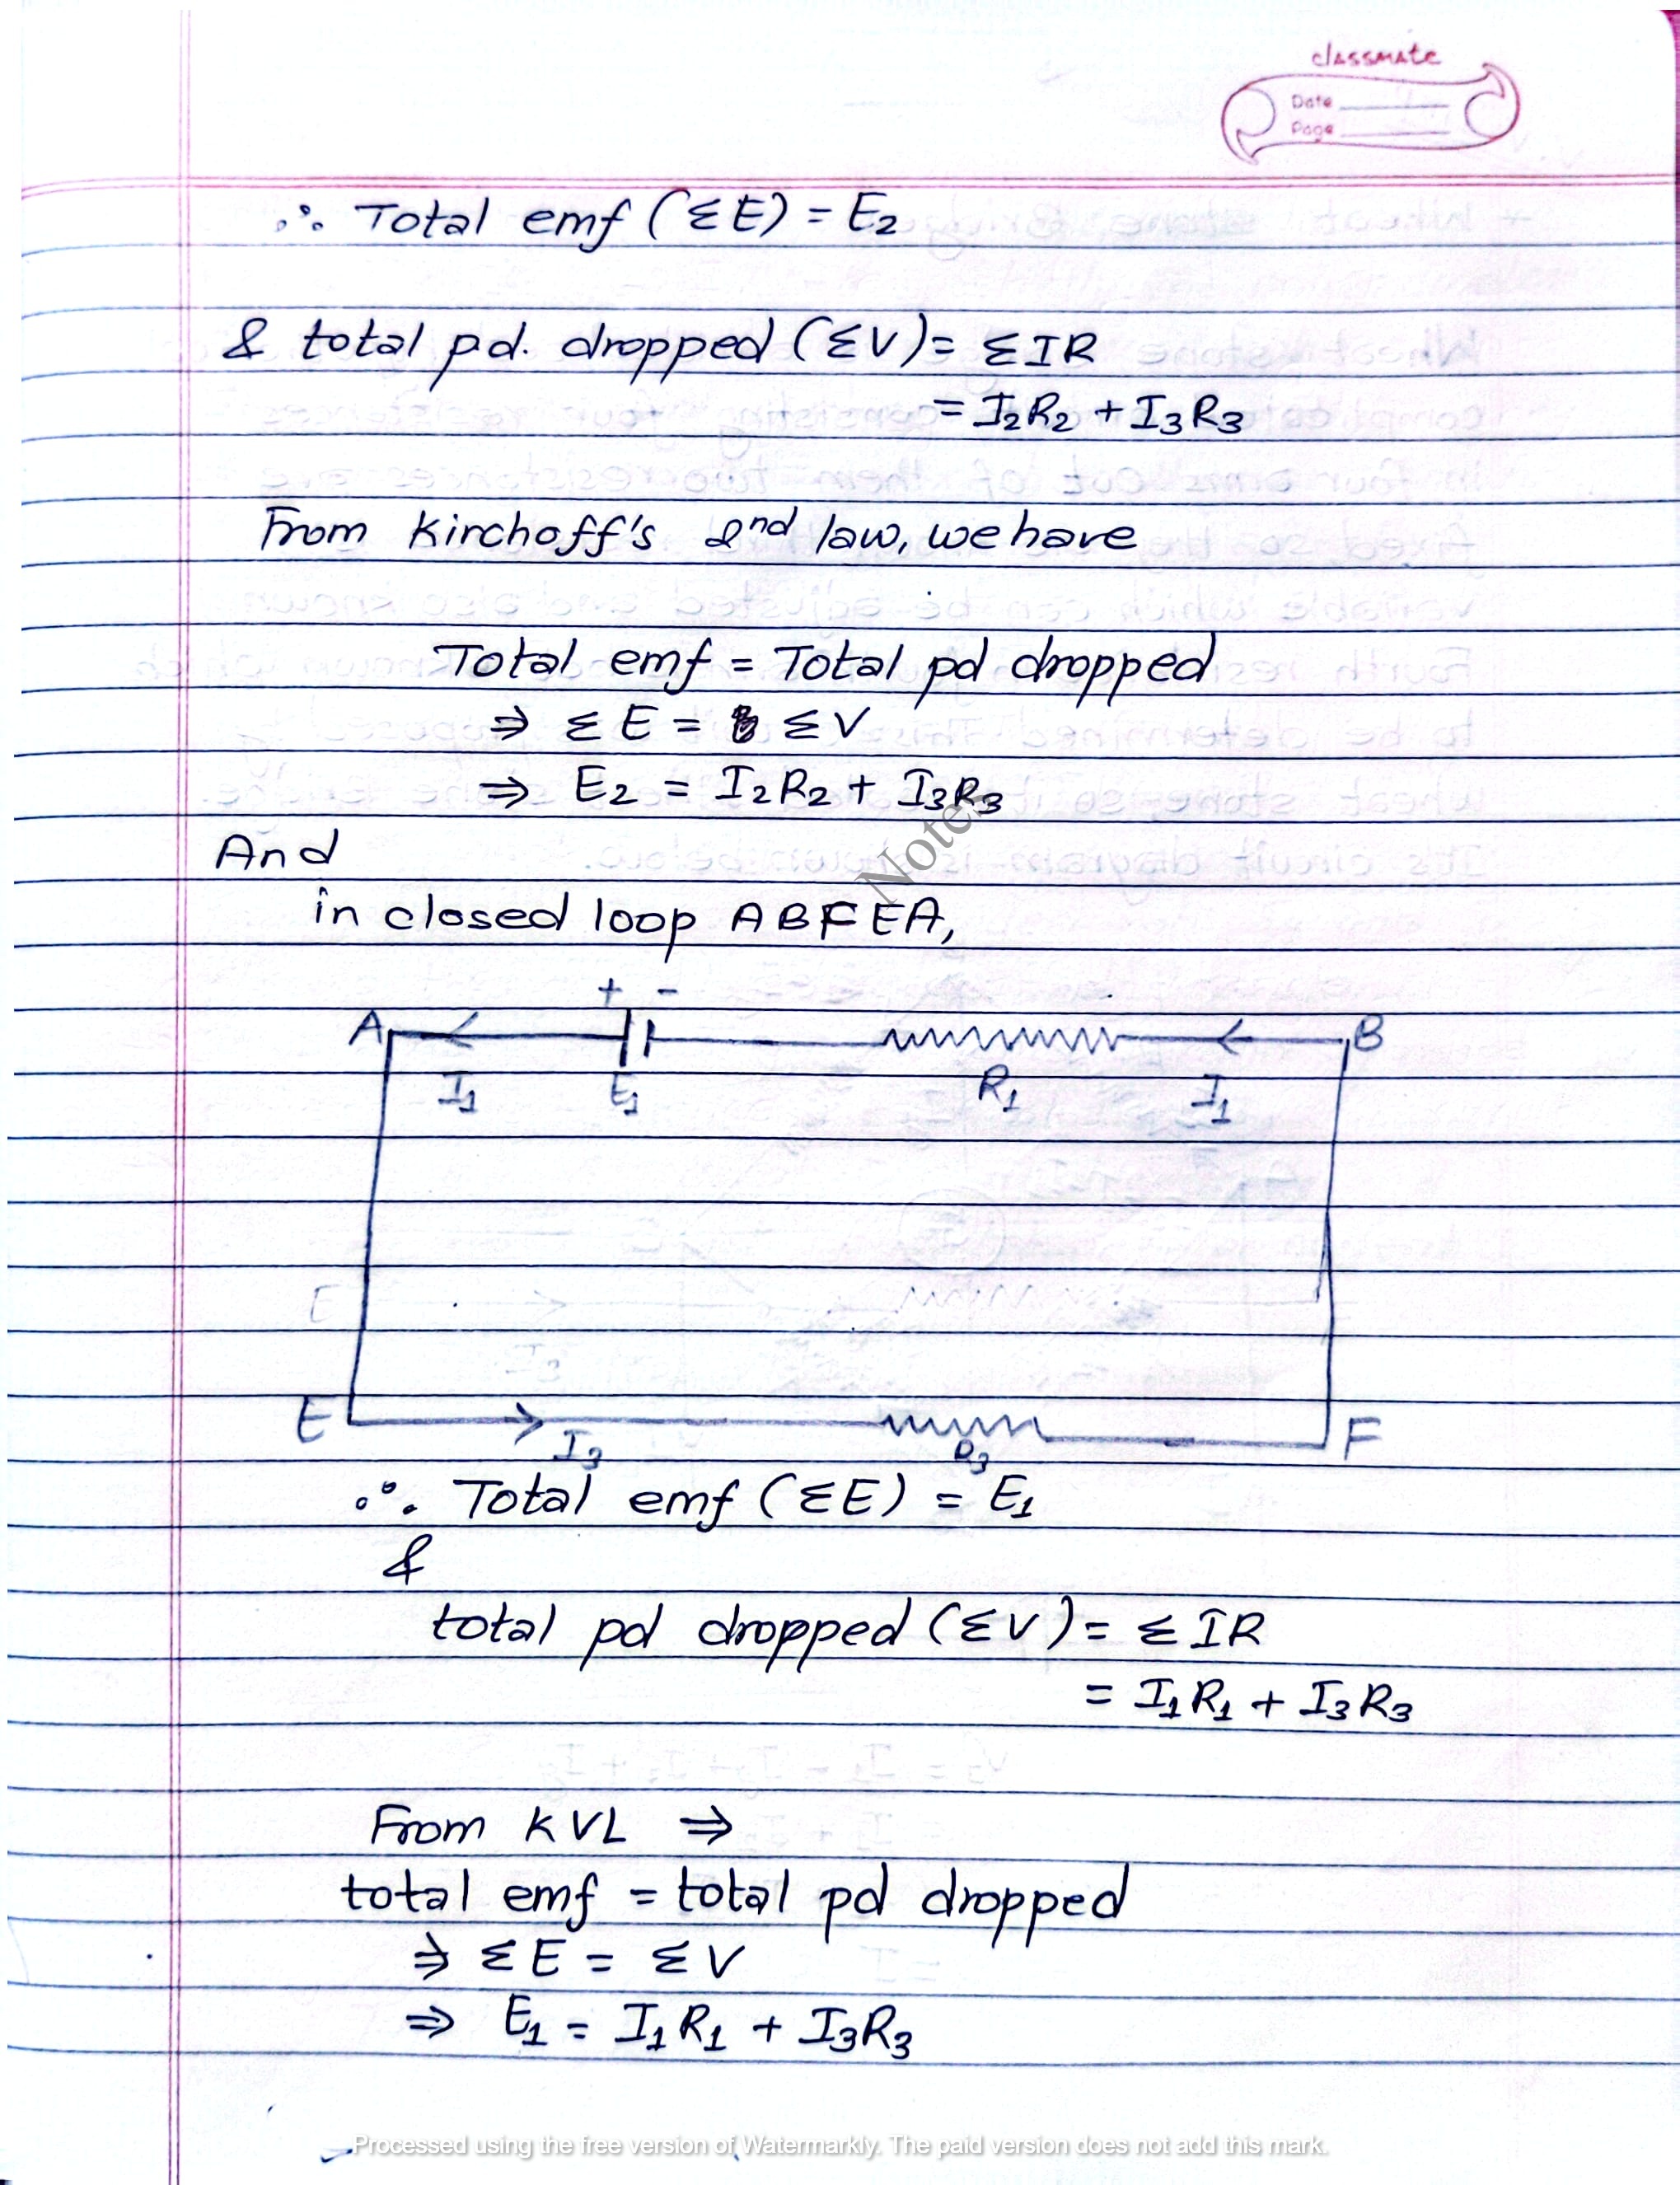 classmate
Date
Page
∴ Total emf (ΣE) = E₂
& total p.d. dropped (ΣV) = ΣIR
= I₂R₂ + I₃R₃
From Kirchoff's 2nd law, we have
Total emf = Total pd dropped
⇒ ΣE = ΣV
⇒ E₂ = I₂R₂ + I₃R₃
And
in closed loop ABFEA,
+ -
A B
I₁ E₁ R₁ I₁
E F
I₃ R₃
∴ Total emf (ΣE) = E₁
&
total pd dropped (ΣV) = ΣIR
= I₁R₁ + I₃R₃
From KVL ⇒
total emf = total pd dropped
⇒ ΣE = ΣV
⇒ E₁ = I₁R₁ + I₃R₃
Processed using the free version of Watermarkly. The paid version does not add this mark.